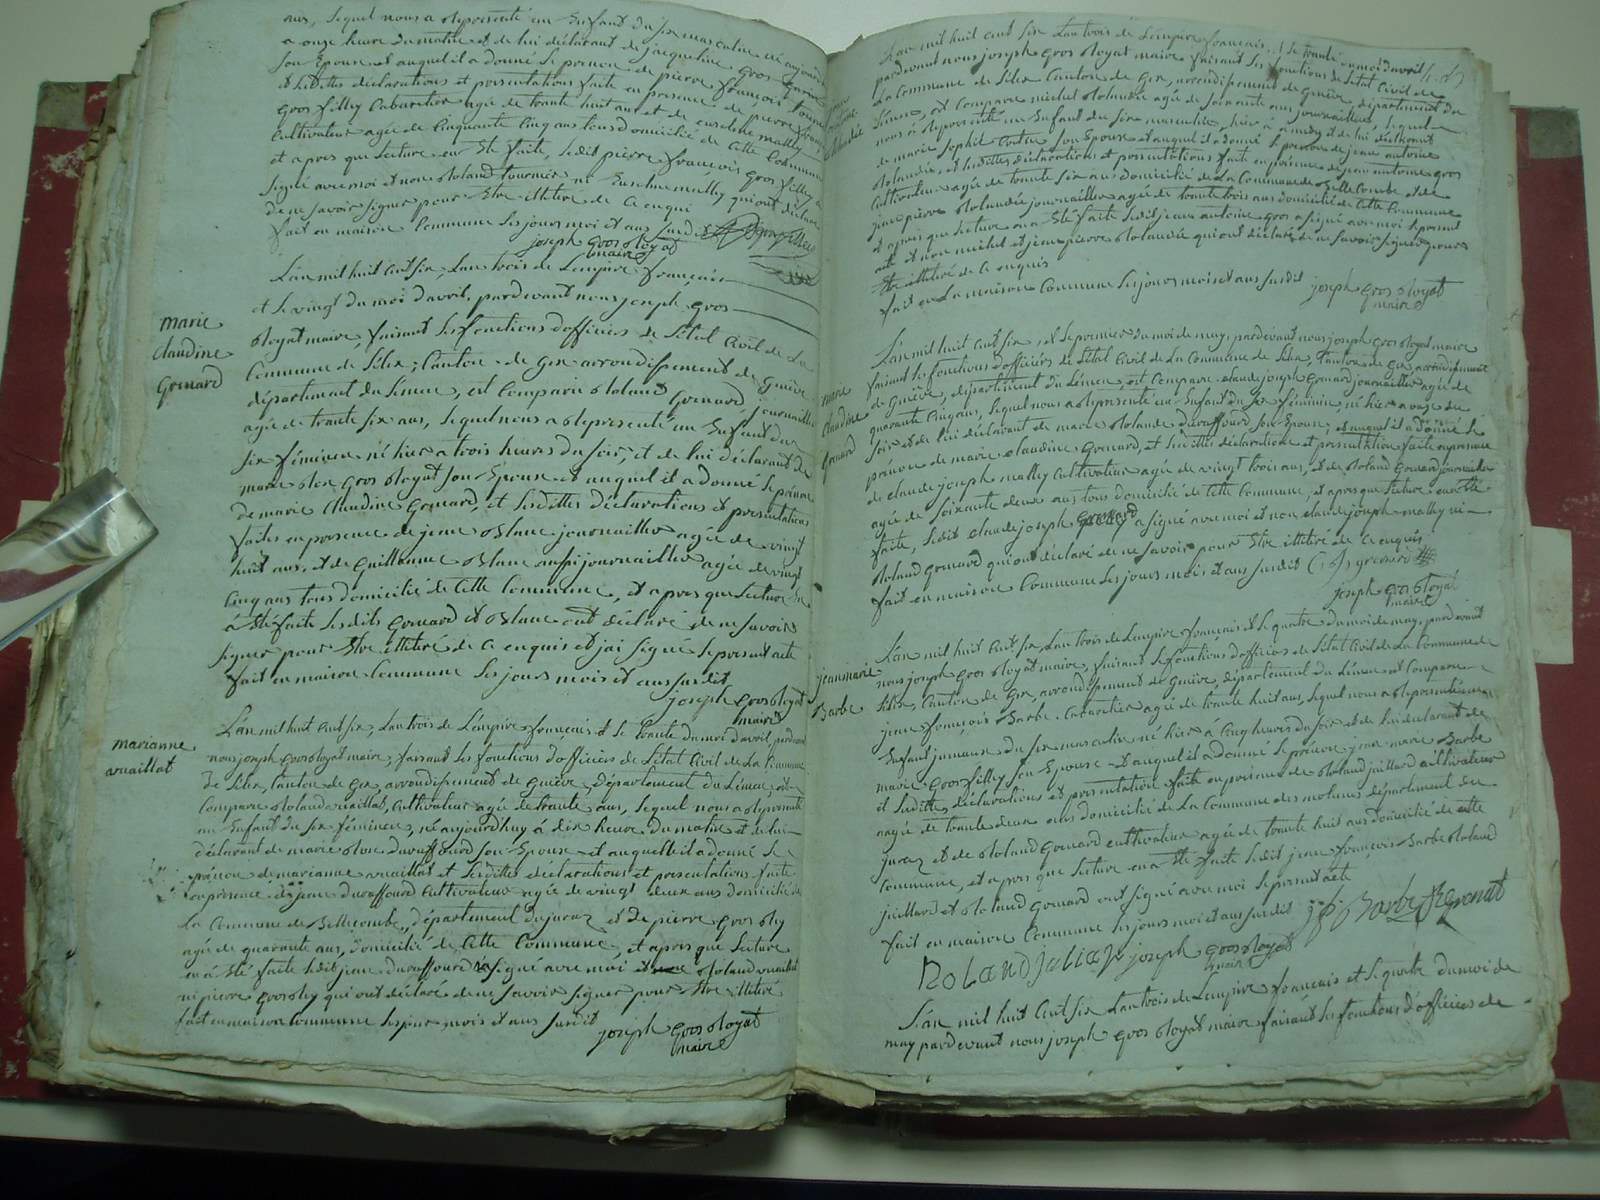 ans, lequel nous a représenté un Enfant du sexe masculin né aujourd
a onze heure du matin et de lui déclarant de jacqueline gros
son Epouse et auquel il a donné le prenom de pierre françois
et lesdittes déclarations et présentations faite en presence de pierre françois
gros filley Cabaretier agée de trante huit ans et de anselme mathy
Cultivateur agée de Cinquante Cinq ans tous domicilié de Cette Commune
et apres que lecture en Eté faite, ledit pierre françois gros filley a
signé avec moi et non Roland tournier ni Anselme mathy qui ont déclaré
de ne savoir signer pour Etre illitéré de Ce enquis
fait en maison Commune les jours moi et ans susdit
joseph gros Royat
maire
L'an mil huit Cent six, L'an trois de L'empire français
et le vingt du moi d'avril, pardevant nous joseph gros
marie
Claudine
Gonard
Royat maire, faisant les fonctions d'officiés de l'état Civil de La
Commune de Lélex, Canton de Gex arrondissement de Genève
département du Léman, est Comparu Roland Gonard journaillier
agée de trante six ans, lequel nous a représenté un Enfant du
sixe féminin né hier a trois heures du soir, et de lui déclarant de
marie Rose gros Royat son Epouse et auquel il a donné le prénom
de marie Claudine Gonard, et lesdittes déclarations et présentations
faites en presence de jean Blanc journaillier agée de vingt
huit ans, et de Guillaume Blanc aussi journaillier agée de vingt
Cinq ans tous domicilié de Cette Commune, et apres que lecture En
à Eté faite lesdits Gonard et Blanc ont déclaré de ne savoir
signer pour Etre illitéré de Ce enquis et j'ai signé le présent acte
fait en maison Commune les jours mois et ans susdit
joseph gros Royat
maire
marianne
vuaillat
L'an mil huit Cent six, L'an trois de L'empire français et le trante du moi d'avril, pardevant
nous joseph gros Royat maire, faisant les fonctions d'officiés de L'état Civil de La Commune
de Lélex, Canton de Gex, arrondissement de Genève, département du Léman, est
Comparu Roland vuaillat, Cultivateur agée de trante ans, lequel nous a représenté
un Enfant du sixe féminin, né aujourd'huy à dix heure du matin et de lui
déclarant de marie Rose ducoffourd son Epouse et auquel il a donné le
prénom de marianne vuaillat et lesdittes déclarations et présentations faite
en présence de jean ducoffourd Cultivateur agée de vingt deux ans domicilié de
La Commune de Bellecombe, département du jura et de pierre gros Roy
agée de quarante ans, domicilié de Cette Commune, et apres que lecture
en à Eté faite ledit jean ducoffourd a signé avec moi et non Roland vuaillat
ni pierre gros Roy qui ont déclaré de ne savoir signer pour Etre illitéré
fait en maison Commune les jour mois et ans susdit
joseph gros Royat
maire
L'an mil huit Cent six L'an trois de L'empire français et le trante du moi d'avril
pardevant nous joseph gros Royat maire faisant les fonctions de l'état Civil de
La Commune de Lélex Canton de Gex, arrondissement de Genève, département du
Léman, est Comparu michel Rolandée agée de soixante ans journaillier, lequel
nous à représenté un Enfant du sixe masculin, hier à a midy et de lui déclarant
de marie sophie son Epouse et auquel il a donné le prénom de jean antoine
Rolandée, et lesdittes déclarations et présentations faite en présence de jean antoine gros
Cultivateur agée de trante six ans domicilié de La Commune de Bellecombe et de
jean pierre Rolandée journaillier agée de trante trois ans domicilié de Cette Commune
et apres que lecture en a Eté faite ledit jean antoine gros a signé avec moi le présent
acte et non michel et jean pierre Rolandée qui ont déclaré de ne savoir signer pour
Etre illitéré de Ce enquis
fait en La maison Commune les jours mois et ans susdit
joseph gros Royat
maire
marie
Claudine
Gonard
L'an mil huit Cent six, et le premier du moi de may, pardevant nous joseph gros Royat maire
faisant les fonctions d'officiés de l'état Civil de La Commune de Lélex, Canton de Gex, arrondissement
de Genève, département du Léman, est Comparu Claude joseph Gonard journaillier agée de
quarante Cinq ans, lequel nous a représenté un Enfant du sixe féminin, né hier a onze du
soir et de lui déclarant de marie Rolande ducoffourd son Epouse, et auquel il a donné le
prénom de marie Claudine Gonard, et lesdittes déclarations et présentation faite en présence
de Claude joseph mathy Cultivateur agée de vingt trois ans, et de Roland Gonard journaillier
agée de soixante deux ans tous domicilié de Cette Commune, et apres que lecture en a Eté
faite, ledit Claude joseph Gonard a signé avec moi et non Claude joseph mathy ni
Roland Gonard qui ont déclaré de ne savoir pour Etre illitéré de Ce enquis
fait en maison Commune les jours mois et ans susdit
joseph gros Royat
maire
jean marie
Barbe
L'an mil huit Cent six, L'an trois de L'empire français et le quatre du moi de may, pardevant
nous joseph gros Royat maire, faisant les fonctions d'officiés de l'état Civil de La Commune de
Lélex, Canton de Gex, arrondissement de Genève, département du Léman est Comparu
jean françois Barbe Cabaretier agée de trante huit ans, lequel nous a représenté un
Enfant jumeaux du sixe masculin né hier a Cinq heures du soir et de lui déclarant de
marie gros filley son Epouse et auquel il a donné le prénom jean marie Barbe
et lesdittes déclarations et présentation faite en présence de Roland juillard Cultivateur
agée de trante deux ans domicilié de La Commune des molunes département du
jura, et de Roland Gonard Cultivateur agée de trante huit ans domicilié de Cette
Commune, et apres que lecture en a Eté faite ledit jean françois Barbe Roland
juillard et Roland Gonard ont signé avec moi le présent acte
fait en maison Commune les jours moi et ans susdit
Roland juliar joseph gros Royat
maire
L'an mil huit Cent six L'an trois de L'empire français et le quatre du moi de
may pardevant nous joseph gros Royat maire faisant les fonctions d'officiés de